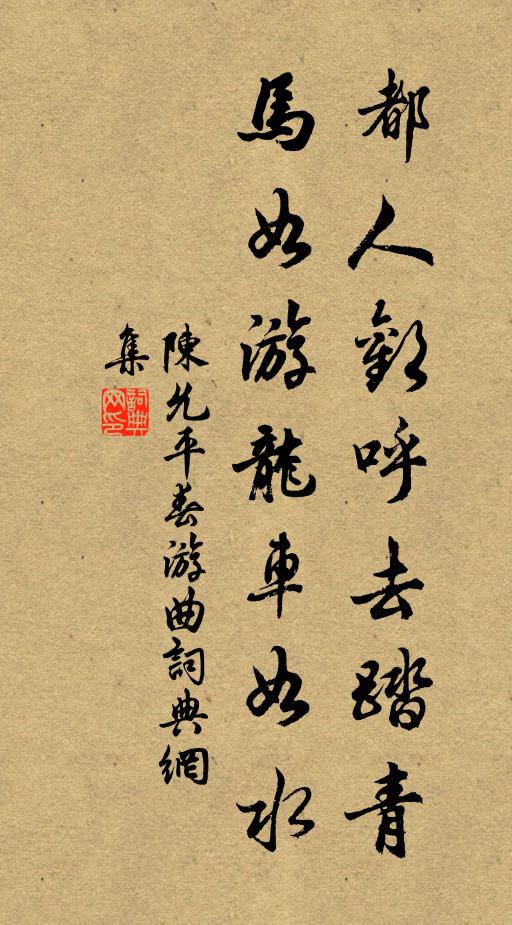 都人歡呼去踏青
馬如游龍車如水
陳允平春游曲詞典網
集
詞典
网印